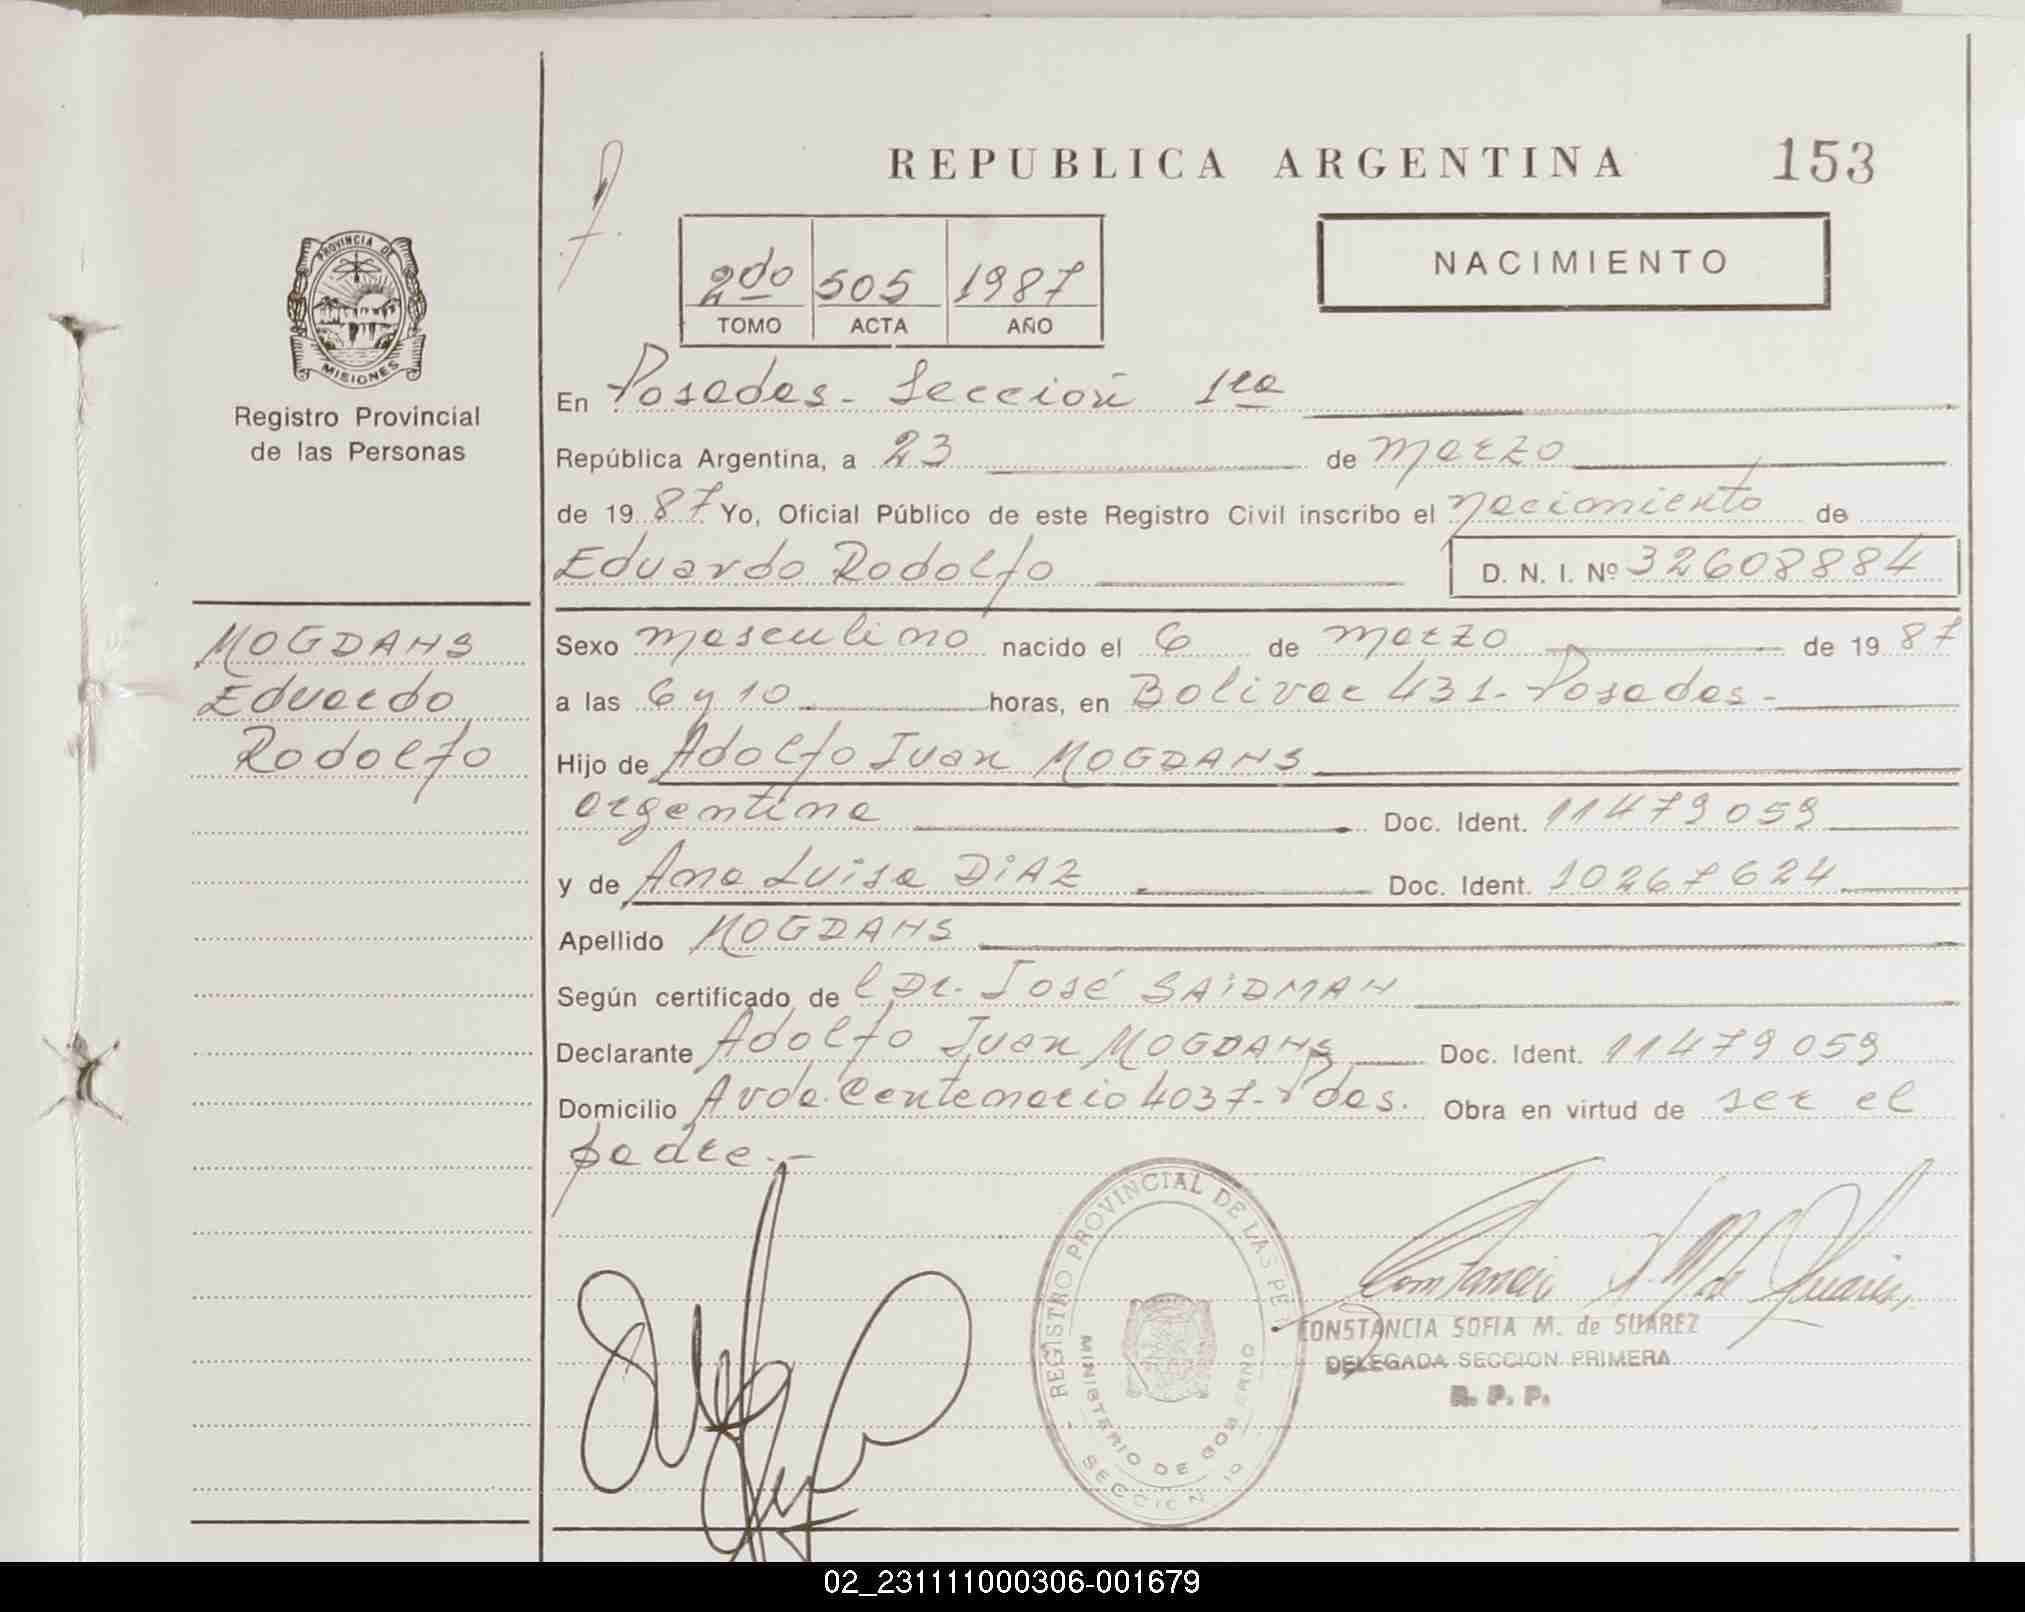 REPUBLICA ARGENTINA 153
NACIMIENTO
2do 505 1987
TOMO ACTA AÑO
PROVINCIA DE
MISIONES
Registro Provincial
de las Personas
MOGDANS
Eduardo
Rodolfo
En Posadas - Sección 1ra
República Argentina, a 23 de marzo
de 1987 Yo, Oficial Público de este Registro Civil inscribo el nacimiento de
Eduardo Rodolfo D. N. I. Nº 32608884
Sexo masculino nacido el 6 de marzo de 1987
a las 6 y 10 horas, en Bolivar 431 - Posadas -
Hijo de Adolfo Juan MOGDANS
argentina Doc. Ident. 11479059
y de Ana Luisa DiAZ Doc. Ident. 10267624
Apellido MOGDANS
Según certificado de l Dr. José SAiDMAN
Declarante Adolfo Juan MOGDANS Doc. Ident. 11479059
Domicilio Avda. Centenario 4037 - Pdas. Obra en virtud de ser el
padre.-
REGISTRO PROVINCIAL DE LAS PE
MINISTERIO DE GOBIERNO
SECCION 1a
Constancia S. M. de Suarez
CONSTANCIA SOFIA M. de SUAREZ
DELEGADA SECCION PRIMERA
R. P. P.
02_231111000306-001679